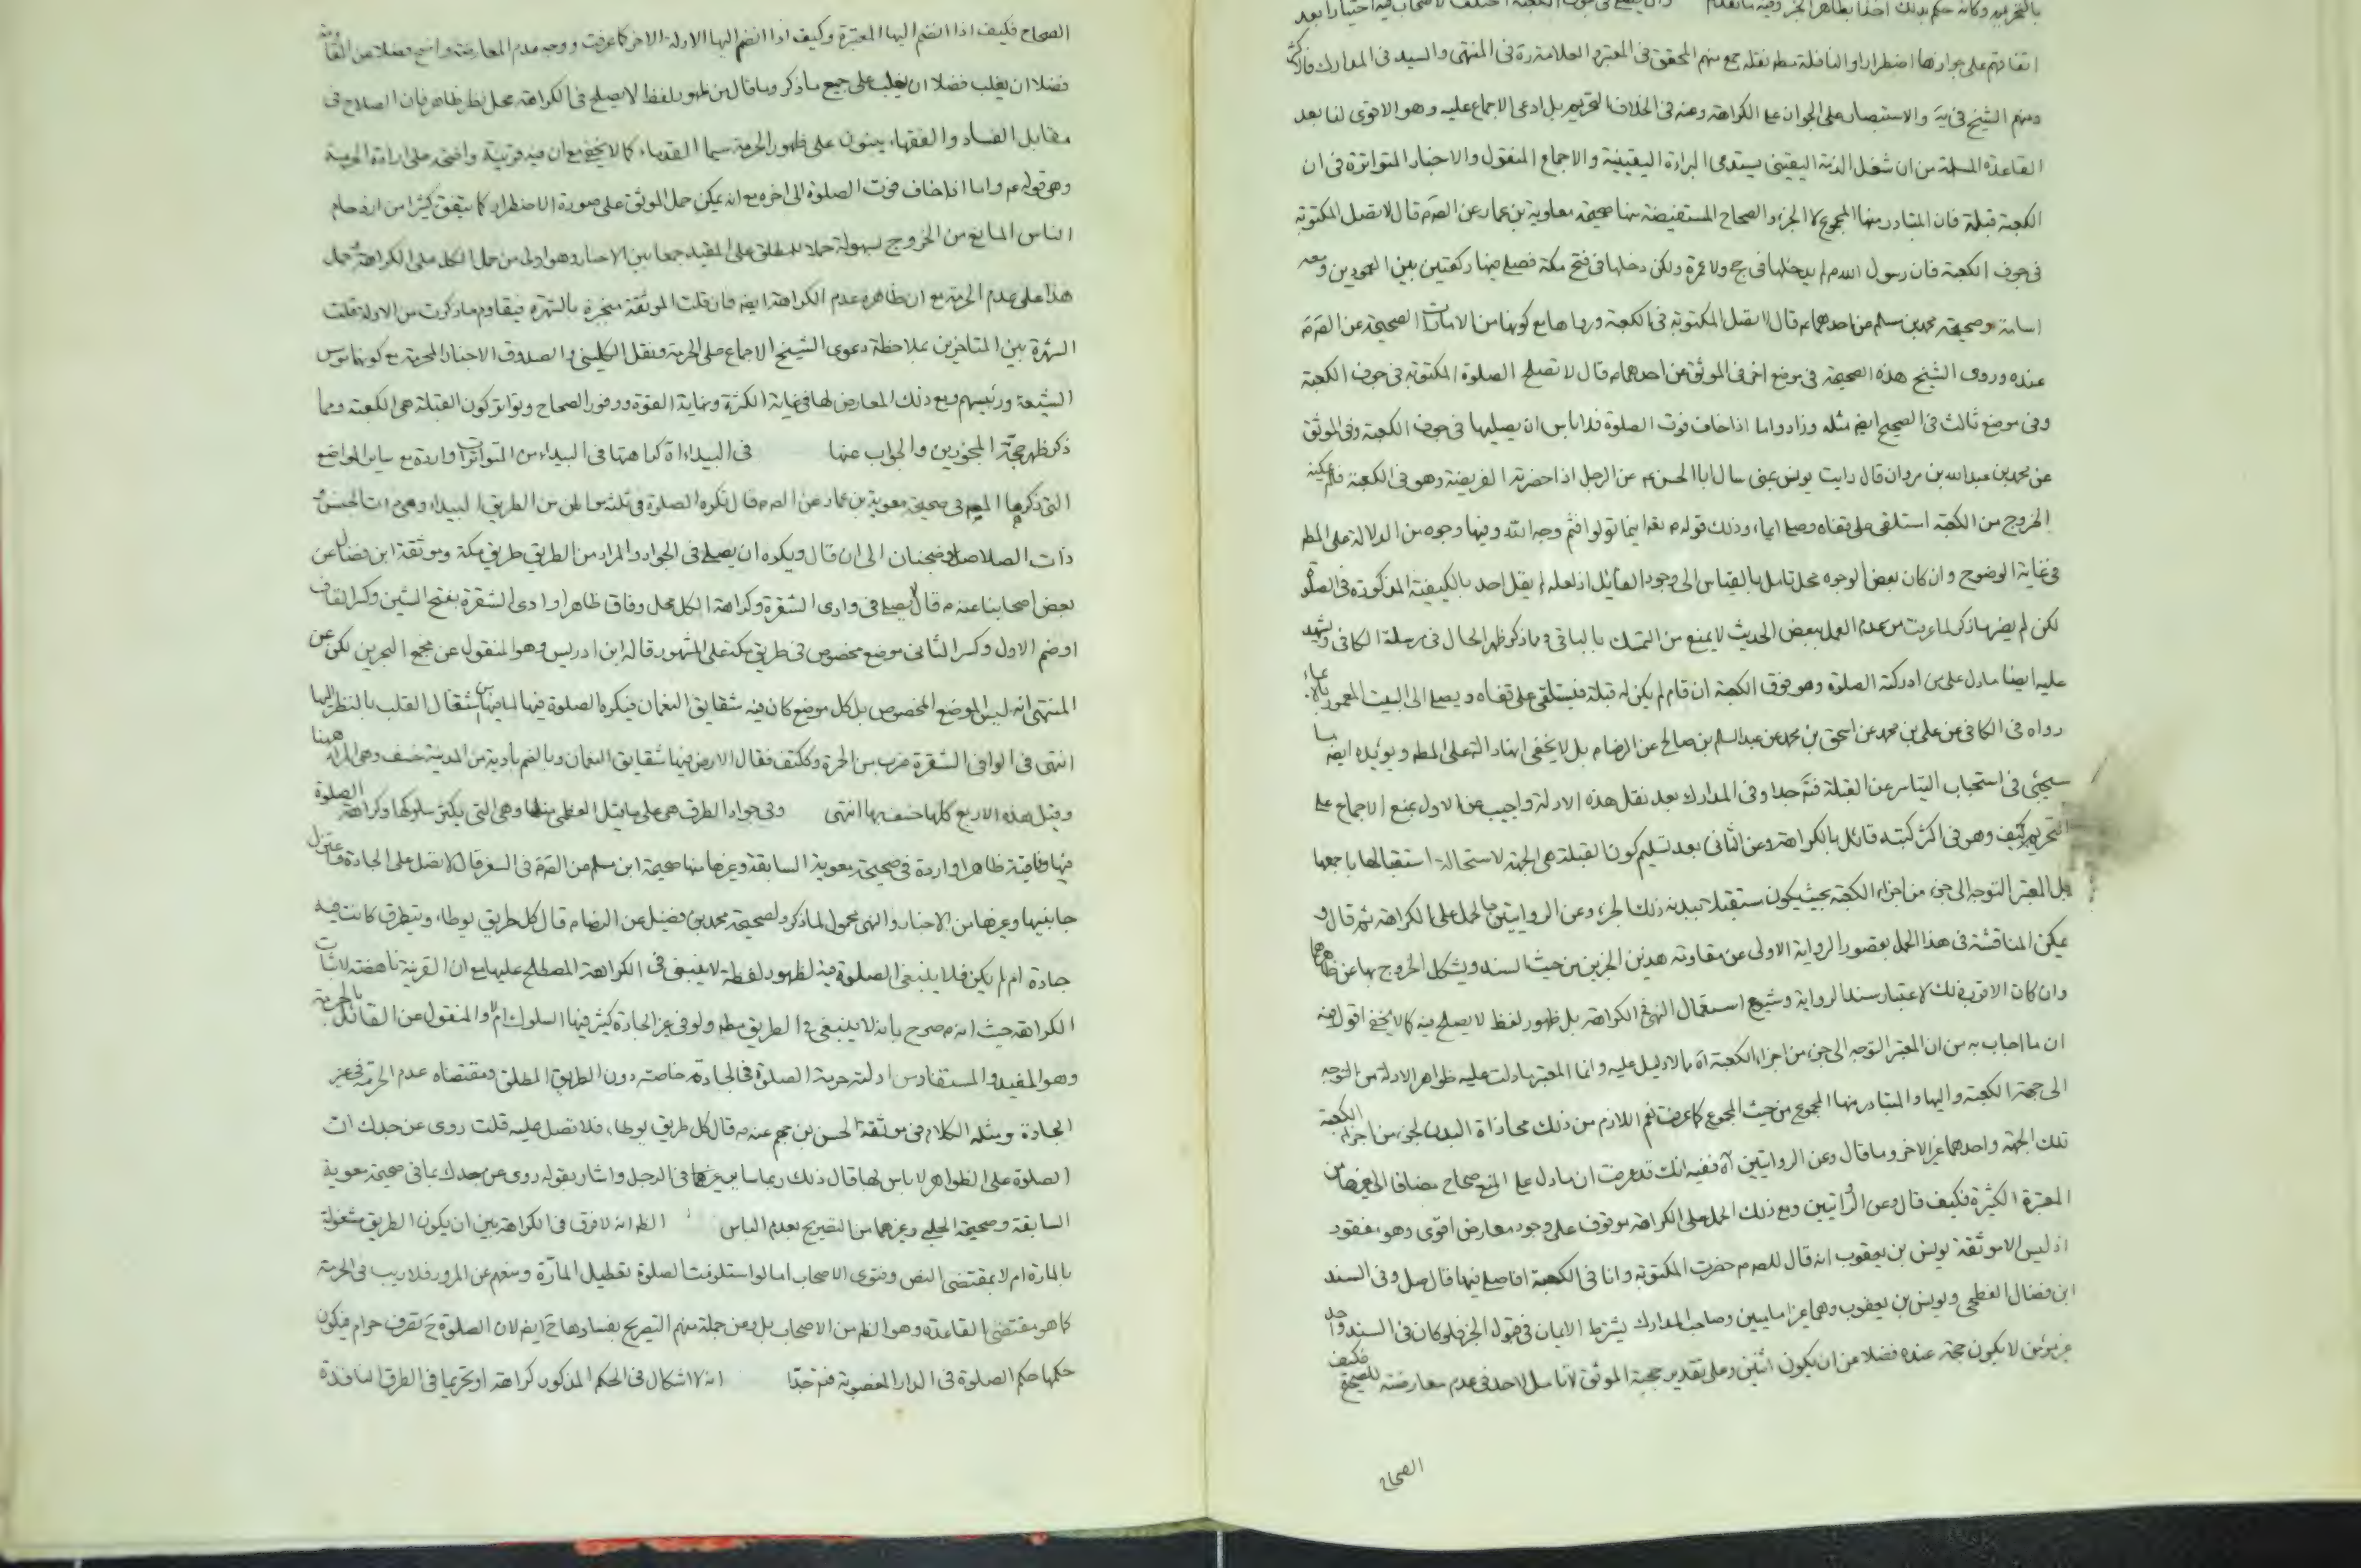 اتفاقهم على جوازها اضطرارا والنافلة مطم نقله جمع منهم المحقق فى المعتبر والعلامة ره فى المنتهى والسيد فى المدارك فالاكثر
ومنهم الشيخ فى يه والاستبصار على الجواز على الكراهة وعنه فى الخلاف التحريم بل ادعى الاجماع عليه وهو الاقوى لنا بعد
القاعدة المسلمة من ان شغل الذمة اليقينى يستدعى البراءة اليقينية والاجماع المنقول والاخبار المتواترة فى ان
الكعبة قبلة فان المتبادر منها المجموع لا الجزء والصحاح المستفيضة منها صحيحة معاوية بن عمار عن الصم قال لا تصل المكتوبة
فى جوف الكعبة فان رسول الله م لم يدخلها فى حج ولا عمرة ولكن دخلها فى فتح مكة فصلى فيها ركعتين بين العمودين ومعه
اسامة وصحيحة محمد بن مسلم عن احدهما م قال لا تصل المكتوبة فى الكعبة
عنده وروى الشيخ هذه الصحيحة فى موضع اخر فى الموثق عن احدهما م قال لا تصلح الصلوة المكتوبة فى جوف الكعبة
وفى موضع ثالث فى الصحيح ايض مثله وزاد واما اذا خاف فوت الصلوة فلا باس ان يصليها فى جوف الكعبة وفى الموثق
عن محمد بن عبد الله بن مروان قال رايت يونس بمنى سال ابا الحسن م عن الرجل اذا حضرته الفريضة وهو فى الكعبة فلم يمكنه
الخروج من الكعبة استلقى على قفاه وصلى ايماء وذلك قوله تعه اينما تولوا فثم وجه الله وفيها وجوه من الدلالة على المطم
فى غاية الوضوح وان كان بعض الوجوه محل تامل بالقياس الى وجود القائل اذ لعله لم يقل احد بالكيفية المذكورة فى الصلوة
لكن لم يضر ما ذكر لما عرفت من عدم العمل ببعض الحديث لا يمنع من التمسك بالباقى ومما ذكر ظهر الحال فى مرسلة الكافى ويشهد
عليه ايضا ما دل على من ادركته الصلوة وهو فوق الكعبة ان قام لم يكن له قبلة فيستلقى على قفاه ويصلى الى البيت المعمور بالايماء
رواه فى الكافى عن على بن محمد عن اسحق بن محمد عن عبد السلم بن صالح عن الرضا م بل لا يخفى انها دالة على المطم ويؤيده ايض ما
سيجئ فى استحباب التياسر عن القبلة فتم جدا وفى المدارك بعد نقل هذه الادلة واجيب عن الاول بمنع الاجماع على
التحريم كيف وهو فى اكثر كتبه قائل بالكراهة وعن الثانى بعد تسليم كون القبلة هى الجهة لاستحالة استقبالها باجمعها
بل المعتبر التوجه الى جزء من اجزاء الكعبة بحيث يكون مستقبلا ببدنه ذلك الجزء وعن الروايتين بالحمل على الكراهة ثم قال و
يمكن المناقشة فى هذا الحمل بقصور الرواية الاولى عن مقاومة هذين الخبرين من حيث السند ويشكل الخروج بها عن ظاهرهما
وان كان الاقرب ذلك لاعتبار سند الرواية وشيوع استعمال النهى فى الكراهة بل ظهور لفظ لا يصلح فيه كما لا يخفى اقول فيه
ان ما اجاب به من ان المعتبر التوجه الى جزء من اجزاء الكعبة اه مما لا دليل عليه وانما المعتبر ما دلت عليه ظواهر الادلة من التوجه
الى جهة الكعبة واليها والمتبادر منها المجموع من حيث المجموع كما عرفت نعم اللازم من ذلك محاذاة البدن لجزء من اجزاء الكعبة
تلك الجهة واحدهما غير الاخر وما قال وعن الروايتين اه ففيه انك قد عرفت ان ما دل على المنع صحاح مضافا الى غيرها من
المعتبرة الكثيرة فكيف قال وعن الروايتين ومع ذلك الحمل على الكراهة موقوف على وجود معارض اقوى وهو مفقود
اذ ليس الا موثقة يونس بن يعقوب انه قال للصم حضرت المكتوبة وانا فى الكعبة افاصلى فيها قال صل وفى السند
ابن فضال الفطحى ويونس بن يعقوب وهما غير اماميين وصاحب المدارك يشترط الايمان فى قبول الخبر فلو كان فى السند واحد
غير موثق لا يكون حجة عنده فضلا من ان يكون اثنين وعلى تقدير حجية الموثق لا تامل لاحد فى عدم معارضته للصحيح فكيف
الصحاح
الصحاح فكيف اذا انضم اليها المعتبرة وكيف اذا انضم اليها الادلة الاخر كما عرفت ووجه عدم المعارضة واضح فضلا عن المقاومة
فضلا ان يغلب فضلا ان يغلب على جميع ما ذكر وما قال من ظهور لفظ لا يصلح فى الكراهة محل نظر ظاهر فان الصلاح فى
مقابل الفساد والفقهاء يبنون على ظهور الحرمة سيما القدماء كما لا يخفى مع ان فيه قرينة واضحة على ارادة الحرمة
وهو قوله م واما اذا خاف فوت الصلوة الى اخره مع انه يمكن حمل الموثق على صورة الاضطرار كما يتفق كثيرا من ازدحام
الناس المانع من الخروج بسهولة حملا للمطلق على المقيد جمعا بين الاخبار وهو اولى من حمل الكل على الكراهة وحمل
هذا على عدم الحرمة مع ان ظاهره عدم الكراهة ايض فان قلت الموثقة منجبرة بالشهرة فيقاوم ما ذكرت من الادلة قلت
الشهرة بين المتاخرين بملاحظة دعوى الشيخ الاجماع على الحرمة ونقل الكلينى والصدوق الاخبار المحرمة
الشيعة ورئيسهم ومع ذلك المعارض لها فى غاية الكثرة ونهاية القوة ووفور الصحاح وتواتر كون القبلة هى الكعبة ومما
ذكر ظهر حجة المجوزين والجواب عنها فى البيداء اه كراهتها فى البيداء من المتواترات واردة مع ساير المواضع
التى ذكرها المصم فى صحيحة معوية بن عمار عن الصم قال تكره الصلوة فى ثلثة مواطن من الطريق البيداء وهى ذات الجيش و
ذات الصلاصل وضجنان الى ان قال ويكره ان يصلى فى الجواد والمراد من الطريق طريق مكة وموثقة ابن فضال عن
بعض اصحابنا عنه م قال لا يصلى فى وادى الشقرة وكراهة الكل محل وفاق ظاهرا وادى الشقرة بفتح الشين وكسر القاف
او ضم الاول وكسر الثانى موضع مخصوص فى طريق مكة على المشهور قاله ابن ادريس وهو المنقول عن مجمع البحرين لكن عن
المنتهى انه ليس الموضع المخصوص بل كل موضع كان فيه شقايق النعمان فيكره الصلوة فيها لما فيها من اشتغال القلب بالنظر اليها
انتهى فى الوافى الشقرة ضرب من الحمرة وككتف فقال الارض فيها شقايق النعمان وبالضم بادية من المدينة خسف وهى المراد هيهنا
وقيل هذه الاربع كلها خسف بها انتهى وفى جواد الطرق هى على ما قيل العظمى منها وهى التى يكثر سلوكها وكراهة الصلوة
فيها وفاقية ظاهرا واردة فى صحيحة معوية السابقة وغيرها منها صحيحة ابن مسلم عن الصم فى السفر قال لا تصل على الجادة واعتزل
جانبيها وغيرها من الاخبار والنهى محمول لما ذكر ولصحيحة محمد بن فضيل عن الرضا م قال كل طريق يوطأ ويتطرق كانت فيه
جادة ام لم يكن فلا ينبغى الصلوة فيه لظهور لفظة لا ينبغى فى الكراهة المصطلح عليها مع ان القرينة ناهضة لاثبات
الكراهة حيث انه م صرح بانه لا ينبغى فى الطريق مطم ولو فى غير الجادة كثر فيها السلوك ام لا والمنقول عن القائل بالحرمة
وهو المفيد والمستفاد من ادلته حرمة الصلوة فى الجادة خاصة دون الطريق المطلق ومقتضاه عدم الحرمة فى غير
الجادة ومثله الكلام فى موثقة الحسن بن جهم عنه م قال كل طريق يوطأ فلا تصل عليه قلت روى عن جدك ان
الصلوة على الظواهر لا باس بها قال ذلك ربما سايرنى فى الرجل واشار بقوله روى عن جدك بما فى صحيحة معوية
السابقة وصحيحة الحلبى وغيرهما من التصريح بعدم الباس الظم انه لا فرق فى الكراهة بين ان يكون الطريق مشغولة
بالمارة ام لا بمقتضى النص وفتوى الاصحاب اما لو استلزمت الصلوة تعطيل المارة ومنعهم عن المرور فلا ريب فى الحرمة
كما هو مقتضى القاعدة وهو الظم من الاصحاب بل وعن جملة منهم التصريح بفسادها ح ايض لان الصلوة ح تصرف حرام فيكون
حكمها حكم الصلوة فى الدار المغصوبة فتم جدا انه لا اشكال فى الحكم المذكور كراهة او تحريما فى الطرق النافذة